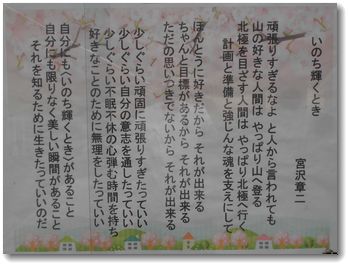 いのち輝くとき
宮沢章二
頑張りすぎるなよ と人から言われても
山の好きな人間は やっぱり山へ登る
北極を目ざす人間は やっぱり北極へ行く
計画と準備と強じんな魂を支えにして
ほんとうに好きだから それが出来る
ちゃんと目標があるから それが出来る
ただの思いつきでないから それが出来る
少しぐらい頑固に頑張りすぎたっていい
少しぐらい自分の意志を通したっていい
少しぐらい不眠不休の心弾む時間を持ち
好きなことのために無理をしたっていい
自分にも〈いのち輝くとき〉があること
自分にも限りなく美しい瞬間があること
それを知るために生きたっていいのだ